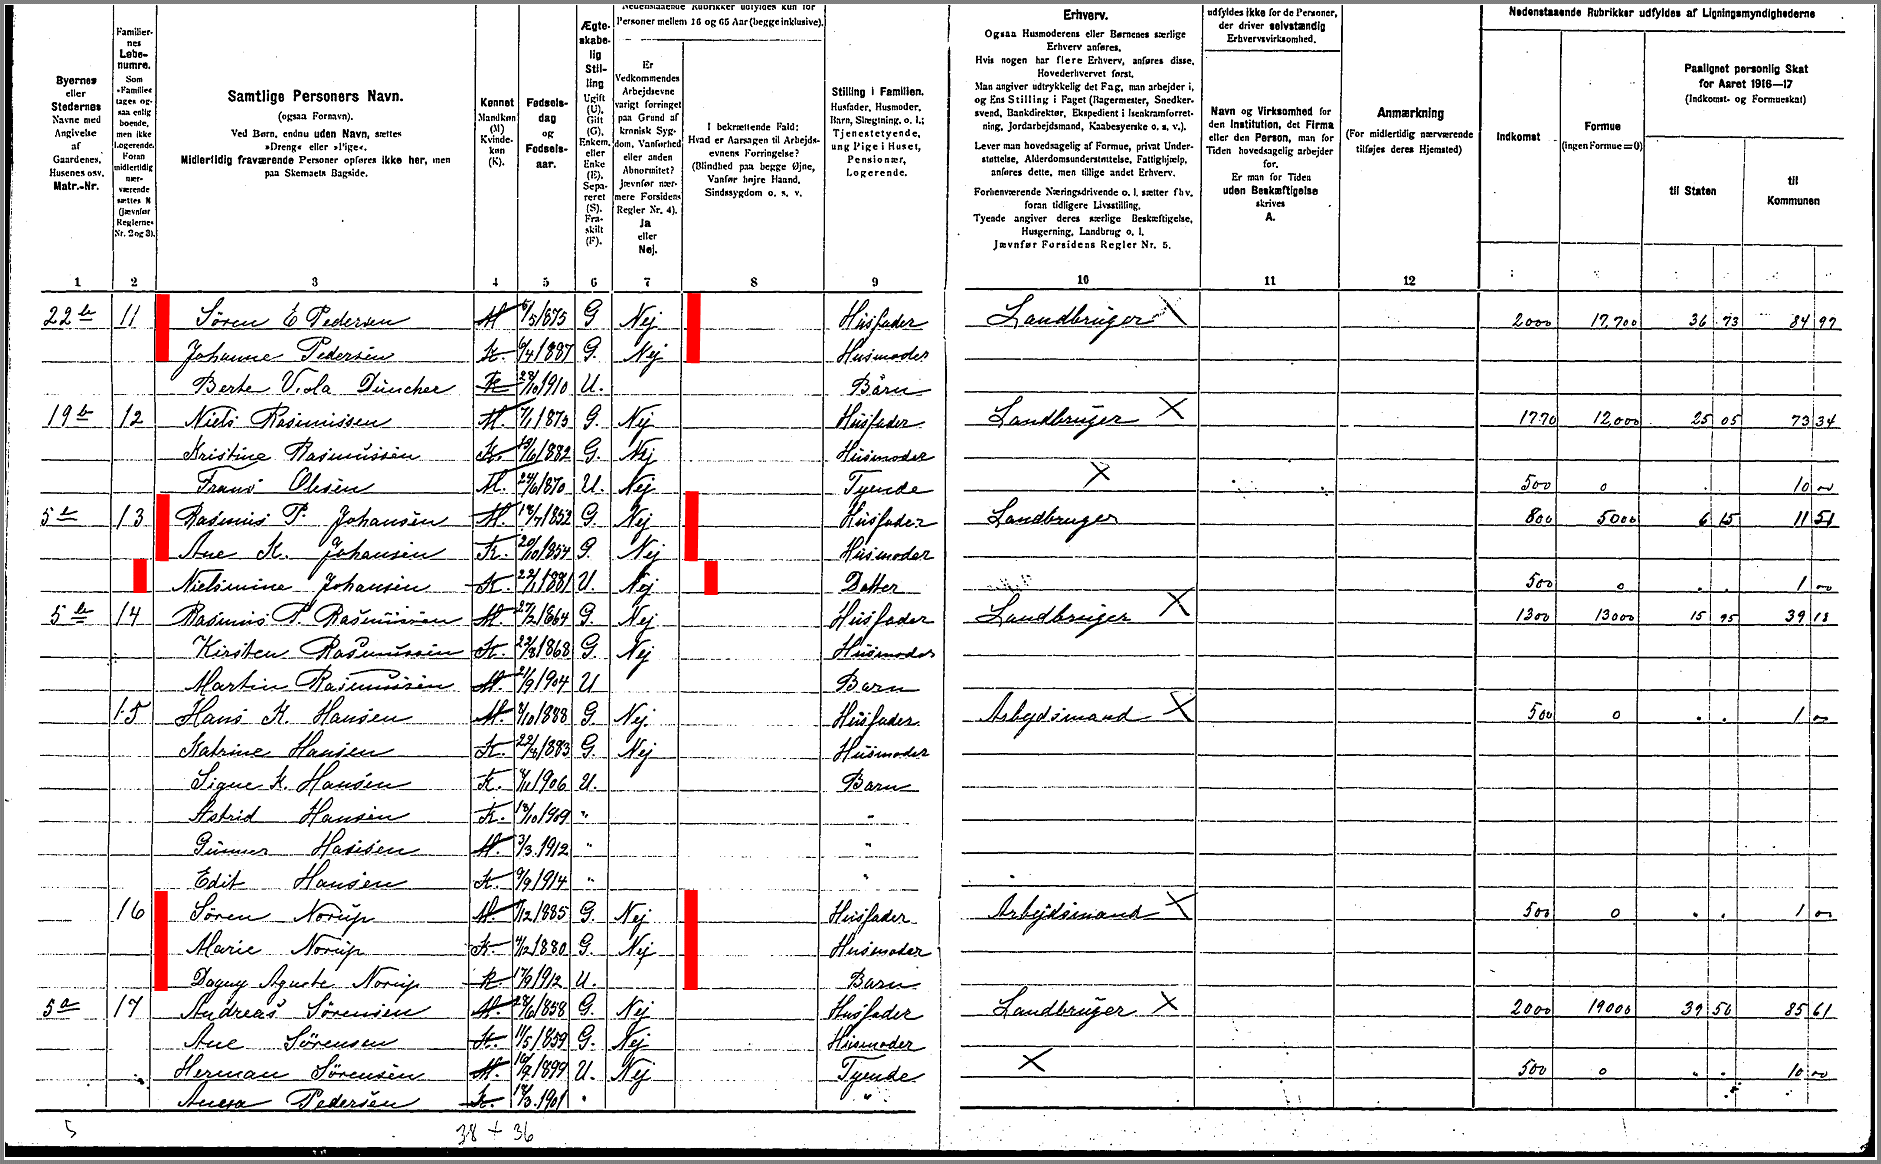 Byernes eller Stedernes Navne med Angivelse af Gaardenes, Husenes osv. Matr.-Nr.
Familiernes Løbenumre. Som »Familie« tages ogsaa enlig boende, men ikke Logerende. Foran midlertidig nærværende sættes N (jævnfør Reglernes Nr. 2 og 3).
Samtlige Personers Navn.
(ogsaa Fornavn).
Ved Børn, endnu uden Navn, sættes
»Dreng« eller »Pige«.
Midlertidig fraværende Personer opføres ikke her, men
paa Skemaets Bagside.
Kønnet Mandkøn (M) Kvindekøn (K).
Fødselsdag og Fødselsaar.
Ægteskabelig Stilling Ugift (U), Gift (G), Enkem. eller Enke (E), Separeret (S), Fraskilt (F).
Nedenstaaende Rubrikker udfyldes kun for
Personer mellem 16 og 65 Aar (begge inklusive).
Er Vedkommendes Arbejdsevne varigt forringet paa Grund af kronisk Sygdom, Vanførhed eller anden Abnormitet? Jævnfør nærmere Forsidens Regler Nr. 4). Ja eller Nej.
I bekræftende Fald: Hvad er Aarsagen til Arbejdsevnens Forringelse? (Blindhed paa begge Øjne, Vanfør højre Haand, Sindssygdom o. s. v.
Stilling i Familien. Husfader, Husmoder, Barn, Slægtning, o. l.; Tjenestetyende, ung Pige i Huset, Pensionær, Logerende.
Erhverv.
Ogsaa Husmoderens eller Børnenes særlige
Erhverv anføres.
Hvis nogen har flere Erhverv, anføres disse,
Hovederhvervet først.
Man angiver udtrykkelig det Fag, man arbejder i,
og Ens Stilling i Faget (Bagermester, Snedkersvend, Bankdirektør, Ekspedient i Isenkramforretning, Jordarbejdsmand, Kaabesyerske o. s. v.).
Lever man hovedsagelig af Formue, privat Understøttelse, Alderdomsunderstøttelse, Fattighjælp,
anføres dette, men tillige andet Erhverv.
Forhenværende Næringsdrivende o. l. sætter fhv.
foran tidligere Livsstilling.
Tyende angiver deres særlige Beskæftigelse,
Husgerning, Landbrug o. l.
Jævnfør Forsidens Regler Nr. 5.
udfyldes ikke for de Personer,
der driver selvstændig
Erhvervsvirksomhed.
Navn og Virksomhed for
den Institution, det Firma
eller den Person, man for
Tiden hovedsagelig arbejder
for.
Er man for Tiden
uden Beskæftigelse
skrives
A.
Anmærkning
(For midlertidig nærværende
tilføjes deres Hjemsted)
Nedenstaaende Rubrikker udfyldes af Ligningsmyndighederne
Indkomst
Formue
(ingen Formue = 0)
Paalignet personlig Skat
for Aaret 1916—17
(Indkomst- og Formueskat)
til Staten
til
Kommunen
1 2 3 4 5 6 7 8 9 10 11 12
22 b 11 Søren E Pedersen M 1875 G Nej Husfader Landbruger 2000 17,700 36 73 84 97
Johanne Pedersen K. 1887 G. Nej Husmoder
Berte Viola Düncher K 1910 U. Barn
19 b 12 Niels Rasmussen M. 1873 G. Nej Husfader Landbruger 1770 12,000 25 05 73 34
Kristine Rasmussen K. 1882 G. Nej Husmoder
Frans Olesen M. 1870 U. Nej Tyende 500 0 10 00
5 13 Rasmus P. Johansen M. 1852 G. Nej Husfader Landbruger 800 5000 6 15 11 51
Ane K. Johansen K. 1854 G. Nej Husmoder
Nielsmine Johansen K. 1881 U. Nej Datter 500 0 1 00
5 b 14 Rasmus P. Rasmussen M 1864 G. Nej Husfader Landbruger 1300 13000 15 95 39 18
Kirsten Rasmussen K. 1868 G. Nej Husmoder
Martin Rasmussen M. 1904 U Barn
15 Hans K. Hansen M. 1888 G. Nej Husfader Arbejdsmand 500 0 1 00
Katrine Hansen K. 1883 G. Nej Husmoder
Signe K. Hansen K. 1906 U. Barn
Astrid Hansen K. 1909 " "
Gunner Hansen M. 3/3 1912 " "
Edit Hansen K. 1914 " "
16 Søren Norup M. 1885 G. Nej Husfader Arbejdsmand 500 0 1 00
Marie Norup K. 1880 G. Nej Husmoder
Dagny Agnete Norup K. 1912 U. Barn
5 a 17 Andreas Sørensen M. 1858 G. Nej Husfader Landbruger 2000 19000 39 50 85 61
Ane Sørensen K. 1859 G. Nej Husmoder
Herman Sørensen M. 1899 U. Nej Tyende 500 0 10 00
Pedersen K. 1901 " "
5 38 + 36